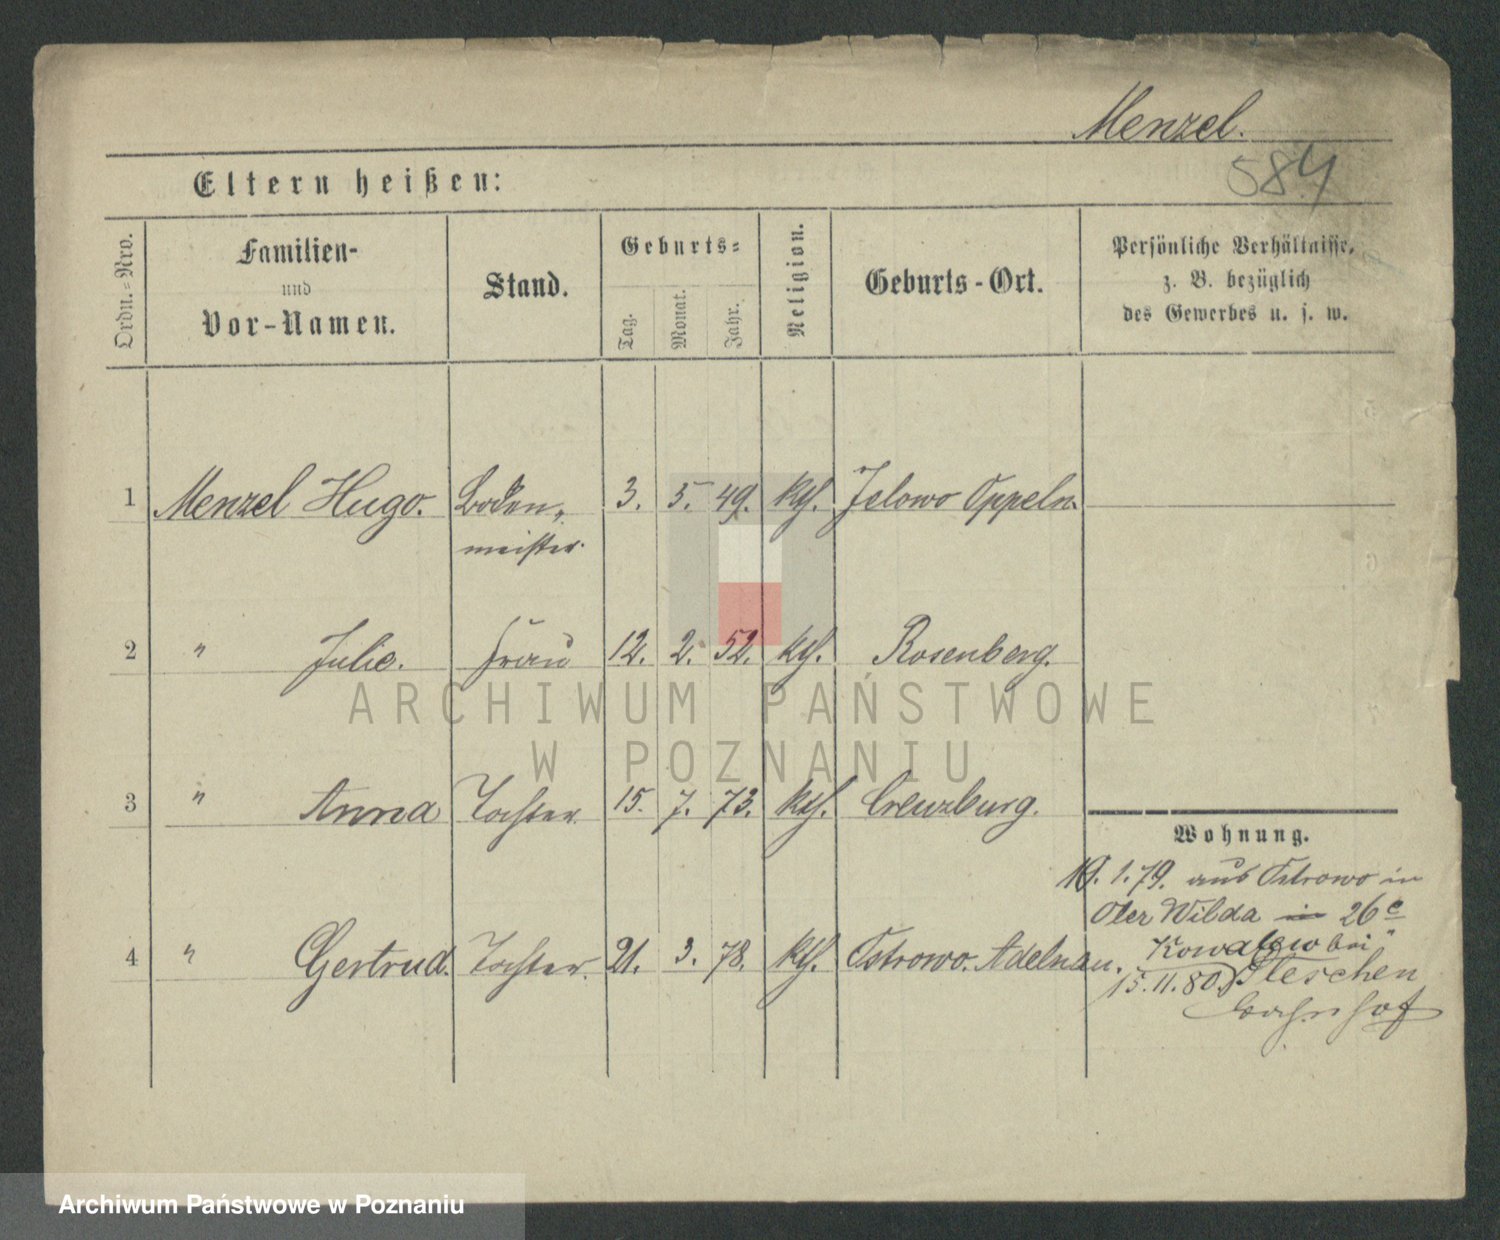 Menzel.
584
Eltern heißen:
Ordn.=Nro.
Familien-
und
Vor-Namen.
Stand.
Geburts=
Tag.
Monat.
Jahr.
Religion.
Geburts-Ort.
Persönliche Verhältnisse,
z. B. bezüglich
des Gewerbes u. s. w.
1 Menzel Hugo. Boden- 3. 5. 49. kth. Jelowo Oppeln.
meister.
2 " Julie. Frau 12. 2. 52. kth. Rosenberg.
3 " Anna Tochter. 15. 7. 73. kth. Creuzburg.
4 " Gertrud. Tochter. 21. 3. 78. kth. Ostrowo. Adelnau.
Wohnung.
19. 1. 79. aus Ostrowo in
Ober Wilda in 26c
Kowalew bei
15. 11. 80. Pleschen
Bahnhof
ARCHIWUM PAŃSTWOWE
W POZNANIU
Archiwum Państwowe w Poznaniu